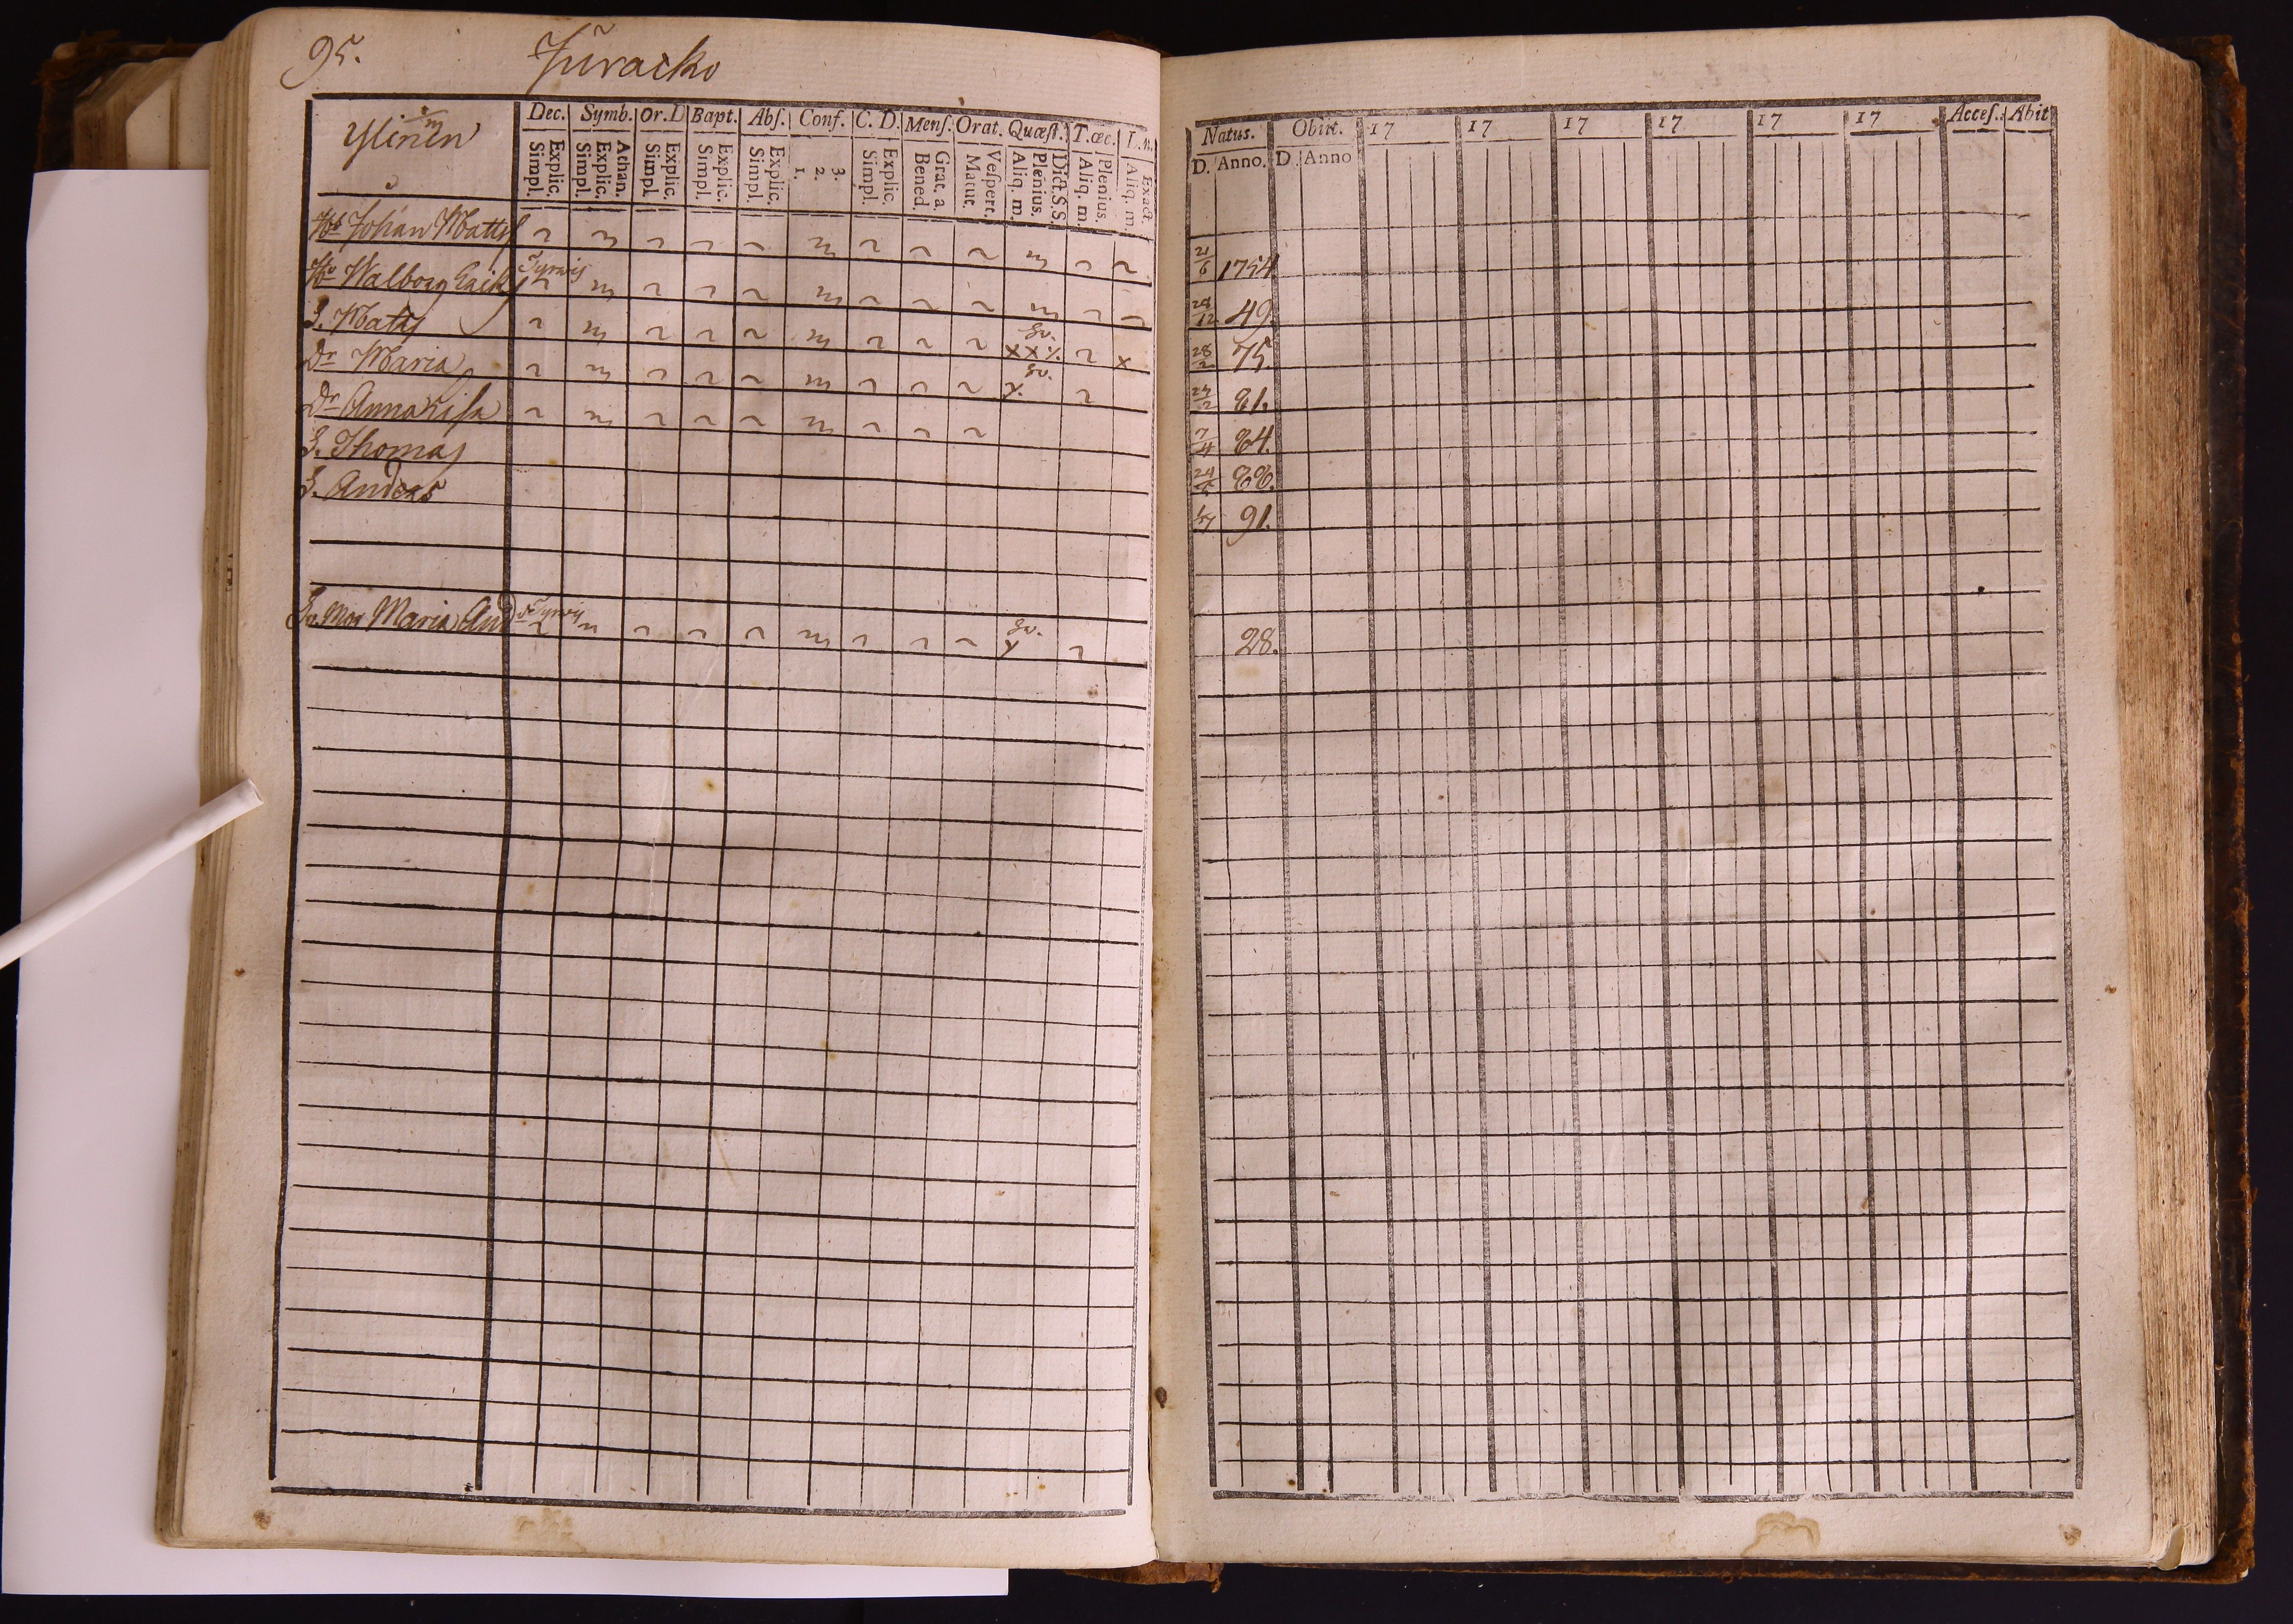 95. Juvacko
Ylinen
Dec. Symb. Or. D Bapt. Abſ. Conf. C. D. Menſ. Orat. Quæſt. T. œc. L. n.
Explic. Simpl. Athan. Explic. Simpl. Explic. Simpl. Explic. Simpl. Explic. Simpl. 3. 2. 1. Explic. Simpl. Grat. a. Bened. Veſpert. Matut. Dict. S. S. Plenius. Aliq. m. Plenius. Aliq. m. Exact. Aliq. m.
Hb Johan Matts
Hu Walborg Eriks Tyrwis
S. Matts
Dr Maria
Dr Anna Lisa
S. Thomas
S. Anders
Sv. Mor Maria And Tyrwis
Natus. Obiit. 17 17 17 17 17 17 Acceſ. Abit
D. Anno. D. Anno
21/6 1754
28/12 49.
28/2 75.
24/2 81.
7/4 84.
24 88.
91.
28.